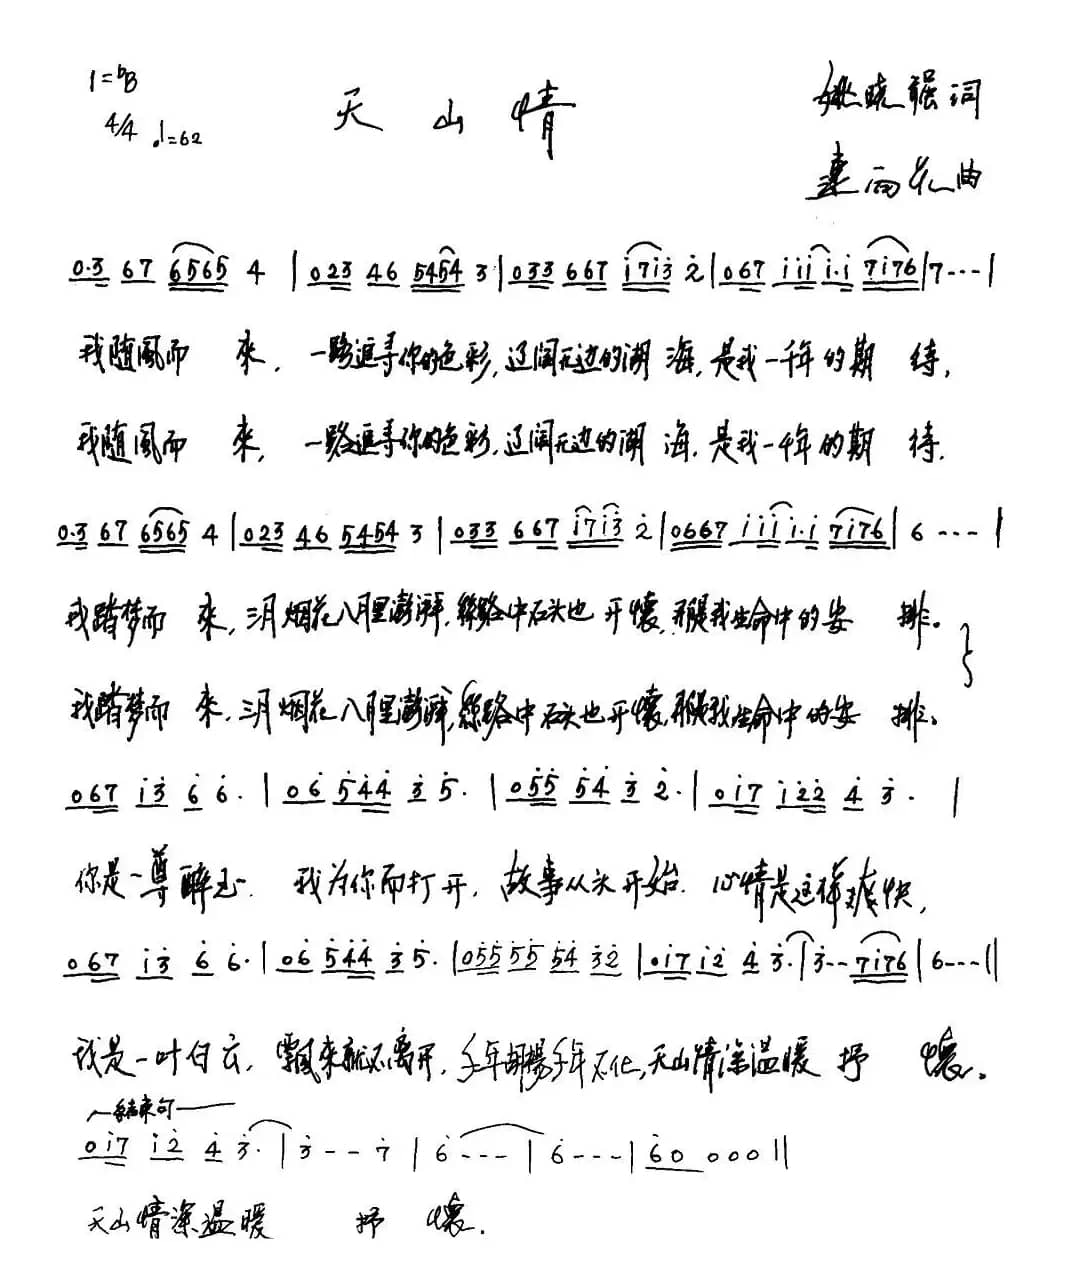 1=bB
4/4 ♩=62
天山情
姚晓强词
雨花曲
0·3 67 6565 4 | 023 46 5454 3 | 033 667 i7i3 2 | 067 iii i·i 7i76 | 7--- |
我随風而 來, 一路追寻你的色彩, 辽阔无边的湖 海, 是我一千年的期 待,
我随風而 來, 一路追寻你的色彩, 辽阔无边的湖 海, 是我一千年的期 待.
0·3 67 6565 4 | 023 46 5454 3 | 033 667 i7i3 2 | 0667 iii i·i 7i76 | 6 --- |
我踏梦而 來, 三月烟花八月里澎湃, 丝路中石头也 开懷, 那是我生命中的安 排。
我踏梦而 來, 三月烟花八月里澎湃, 丝路中石头也开懷, 那是我生命中的安 排。
067 i3 6 6· | 06 544 3 5· | 055 54 3 2· | 0i7 i22 4 3· |
你是一尊醉玉. 我为你而打开, 故事从头开始. 心情是这样爽快,
067 i3 6 6· | 06 544 3 5· | 055 55 54 32 | 0i7 i2 4 3· | 3-- 7i76 | 6--- ||
我是一叶白云, 飘来就不离开, 千年胡楊千年不化, 天山情深温暖 抒 懷。
结束句
0i7 i2 4 3· | 3 -- 7 | 6 --- | 6 --- | 60 000 ||
天山情深温暖 抒 懷.